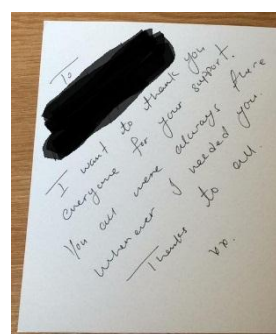 To
I want to thank you
everyone for your support.
You all were always there
whenever I needed you.
Thanks to all.